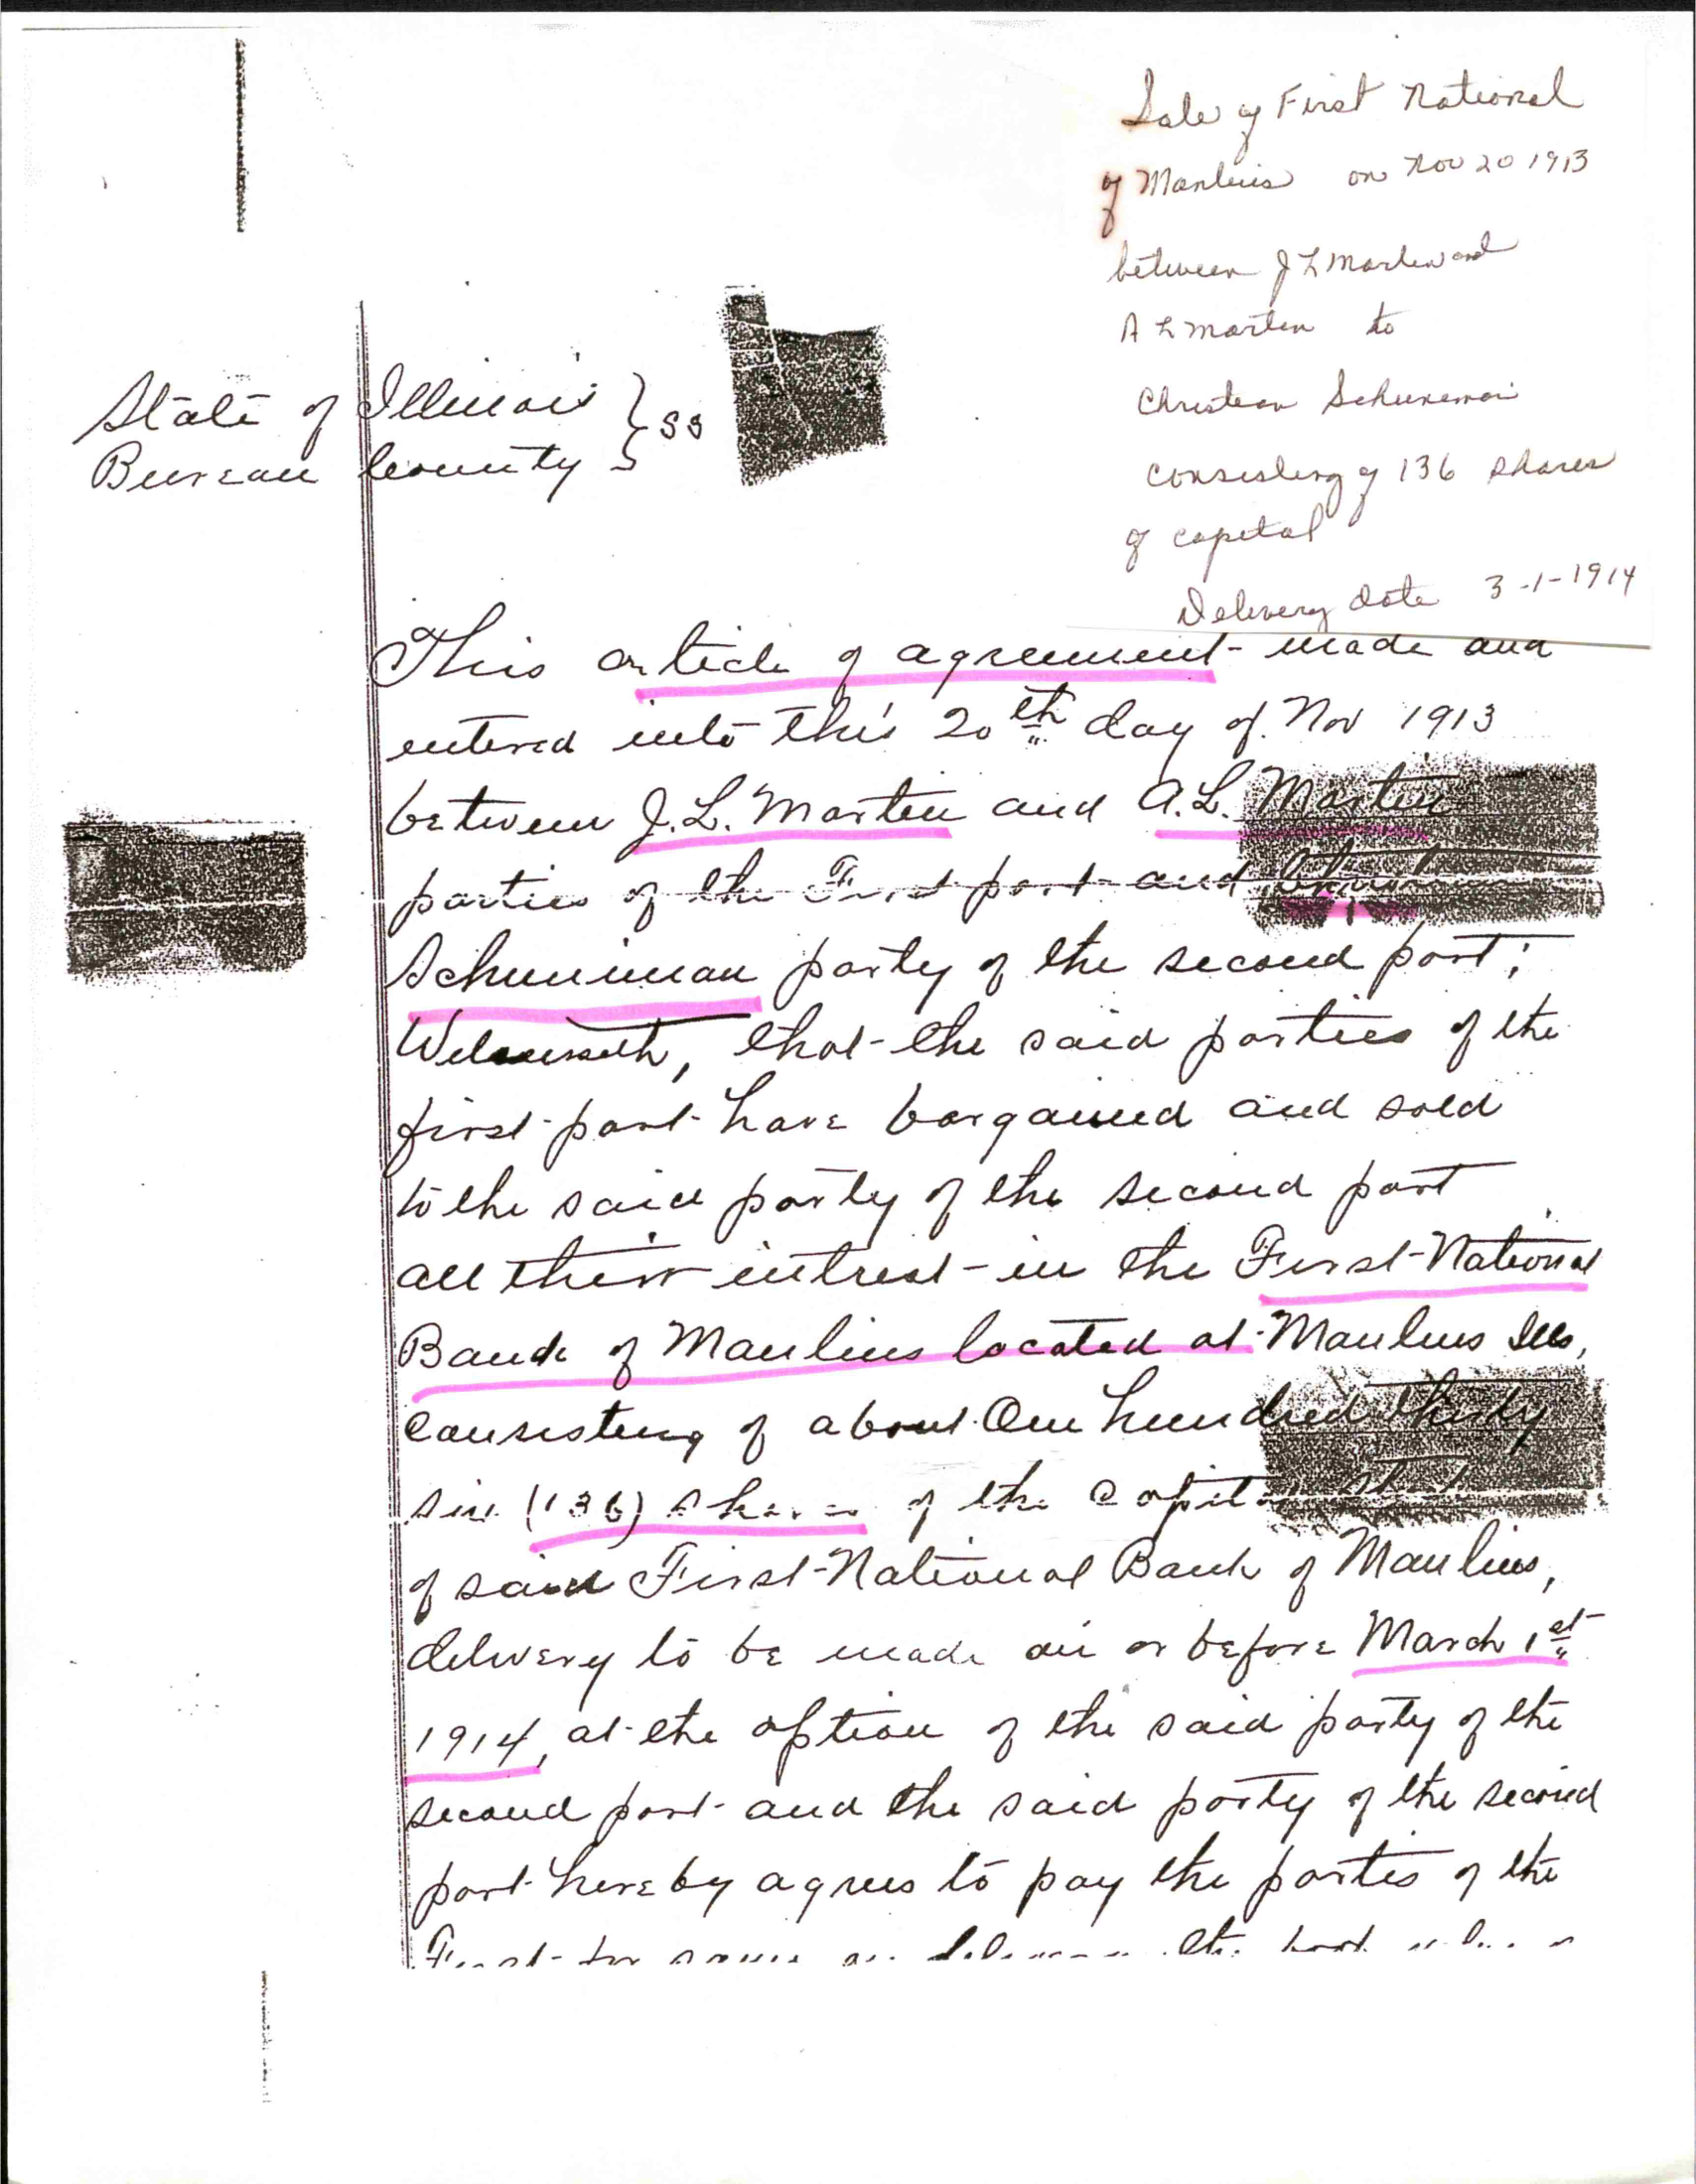 Sale of First National
of Manlius on Nov 20 1913
between J L Martin and
A L Martin to
Christian Schuneman
consisting of 136 shares
of capital
Delivery date 3-1-1914
State of Illinois } SS
Bureau County }
This article of agreement made and
entered into this 20th day of Nov 1913
between J.L. Martin and A.L. Martin
parties of the First part and
Schuneman party of the second part;
that the said parties of the
first part have bargained and sold
to the said party of the second part
all their intrest in the First National
Bank of Manlius located at Manlius Ills,
consisting of about One hundred thirty
six (136) shares of the capital
of said First National Bank of Manlius,
delivery to be made on or before March 1st
1914, at the option of the said party of the
second part and the said party of the second
part hereby agrees to pay the parties of the
First for same on